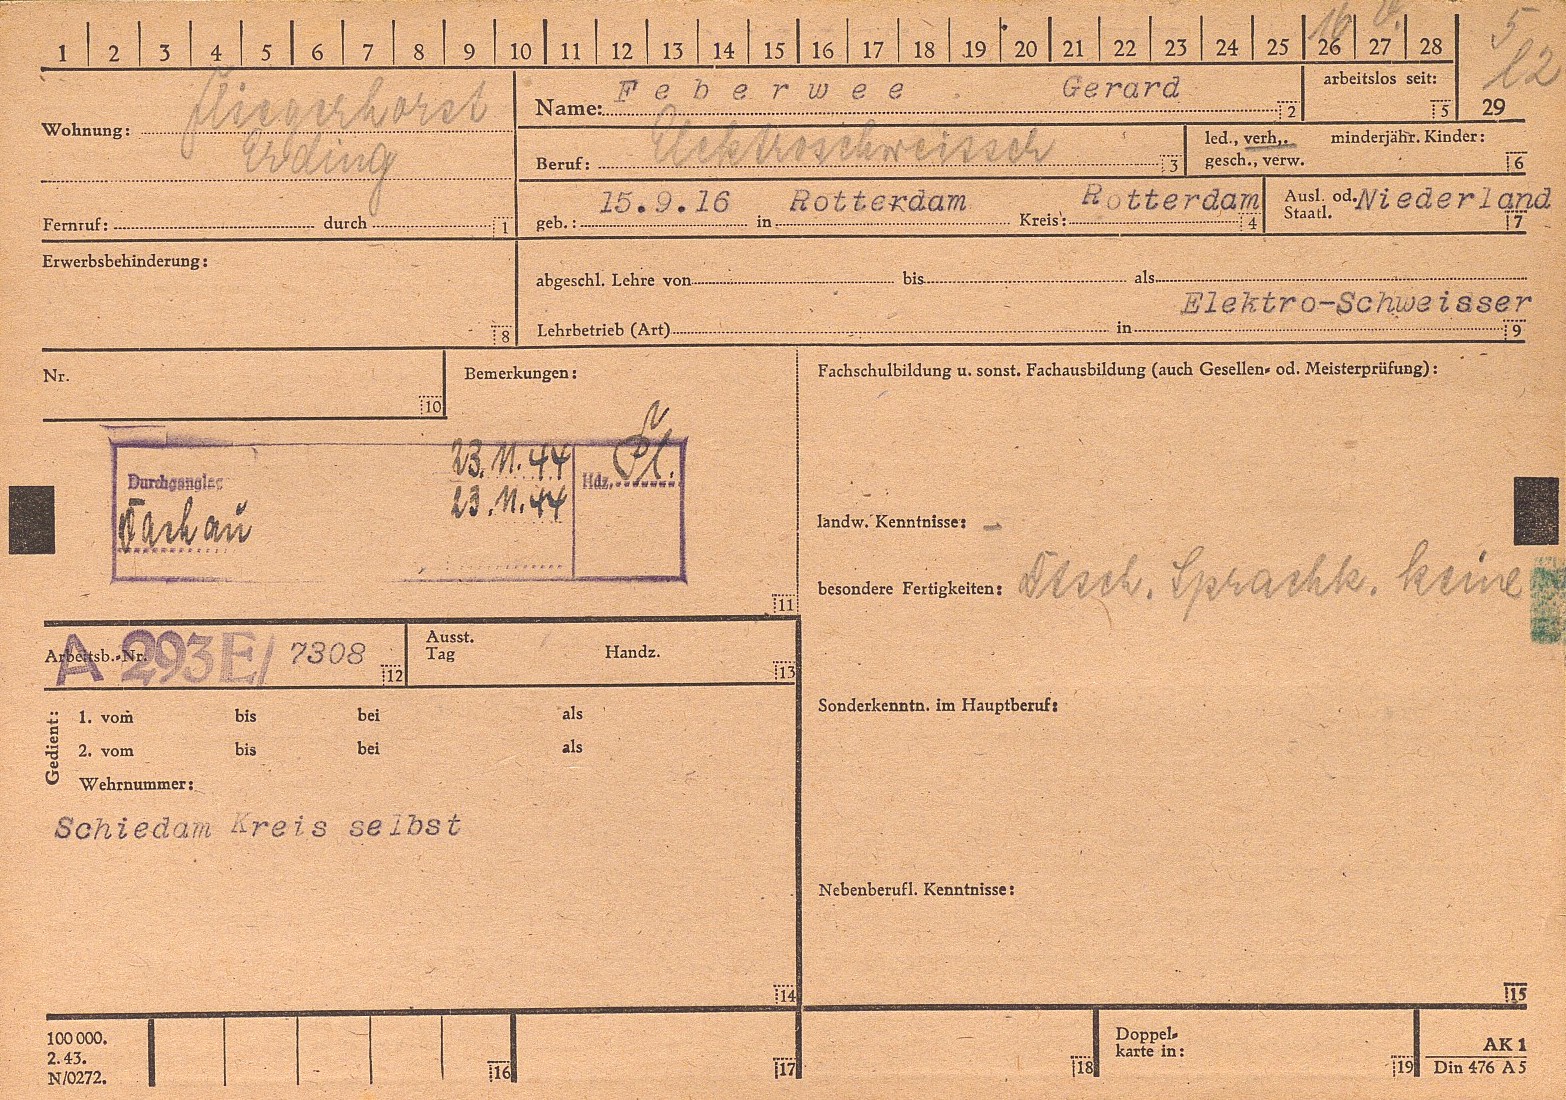 1 2 3 4 5 6 7 8 9 10 11 12 13 14 15 16 17 18 19 20 21 22 23 24 25 26 27 28
16 V. 5
12
29
Wohnung: Fliegerhorst
Erding
Fernruf: durch 1
Name: Feberwee Gerard 2
arbeitslos seit: 5
Beruf: Elektroschweisser 3
led., verh., minderjähr. Kinder:
gesch., verw. 6
geb.: 15.9.16 in Rotterdam Kreis: Rotterdam 4
Ausl. od. Niederland
Staatl. 7
Erwerbsbehinderung: 8
abgeschl. Lehre von bis als
Elektro-Schweisser
Lehrbetrieb (Art) in 9
Nr. 10
Bemerkungen:
Durchganglag 23.11.44 Hdz.
Dachau 23.11.44
11
Fachschulbildung u. sonst. Fachausbildung (auch Gesellen- od. Meisterprüfung):
landw. Kenntnisse: -
besondere Fertigkeiten: Dtsch. Sprachk. keine
Arbeitsb.-Nr. A 293E/ 7308 12
Ausst.
Tag Handz. 13
Sonderkenntn. im Hauptberuf:
Gedient: 1. vom bis bei als
2. vom bis bei als
Wehrnummer:
Schiedam Kreis selbst
14
Nebenberufl. Kenntnisse:
15
100 000.
2. 43.
N/0272.
16 17 18
Doppel-
karte in: 19
AK 1
Din 476 A 5